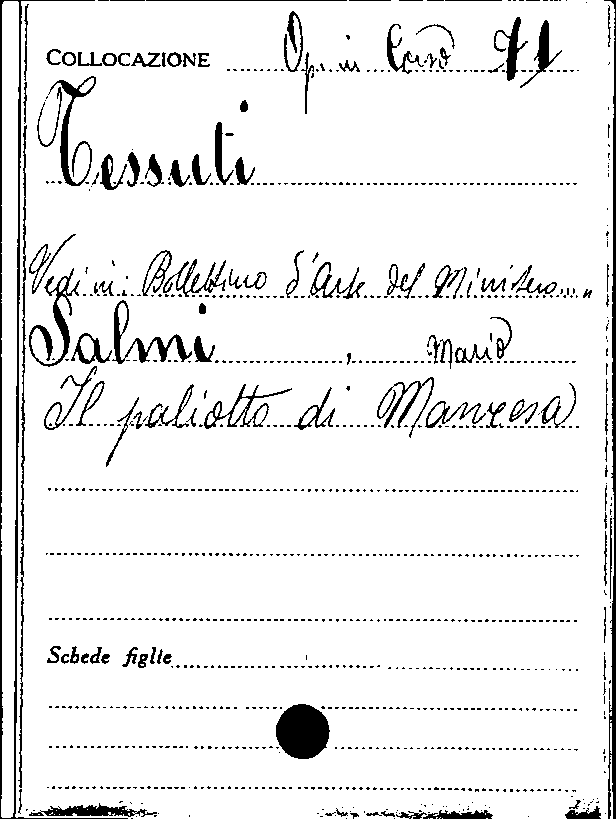 COLLOCAZIONE Op. in Corso 71
Tessuti
Vedi in: Bollettino d'Arte del Ministero...„
Salmi, Mario
Il paliotto di Manresa
Schede figlie